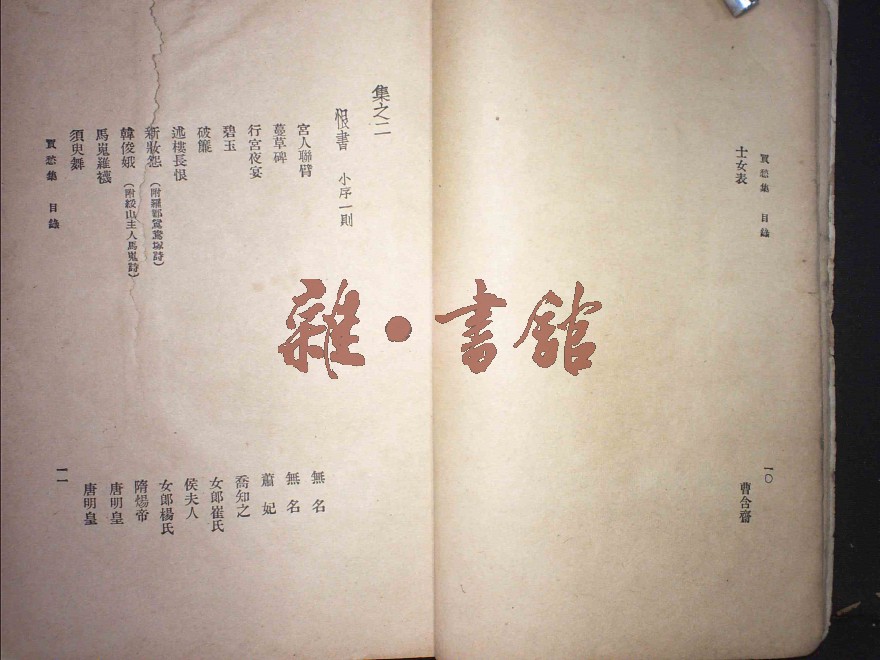 買愁集 目錄
士女表
曹含齋
一〇
集之二
恨書 小序一則
宮人聯臂
無名
蔓草碑
無名
行宮夜宴
蕭妃
碧玉
喬知之
破簾
女郎崔氏
迷樓長恨
侯夫人
新妝怨(附羅鄴鴛鴦塚詩)
女郎楊氏
韓俊娥(附綏山主人馬嵬詩)
隋煬帝
馬嵬羅襪
唐明皇
須臾舞
唐明皇
買愁集 目錄
一一
雜·書館